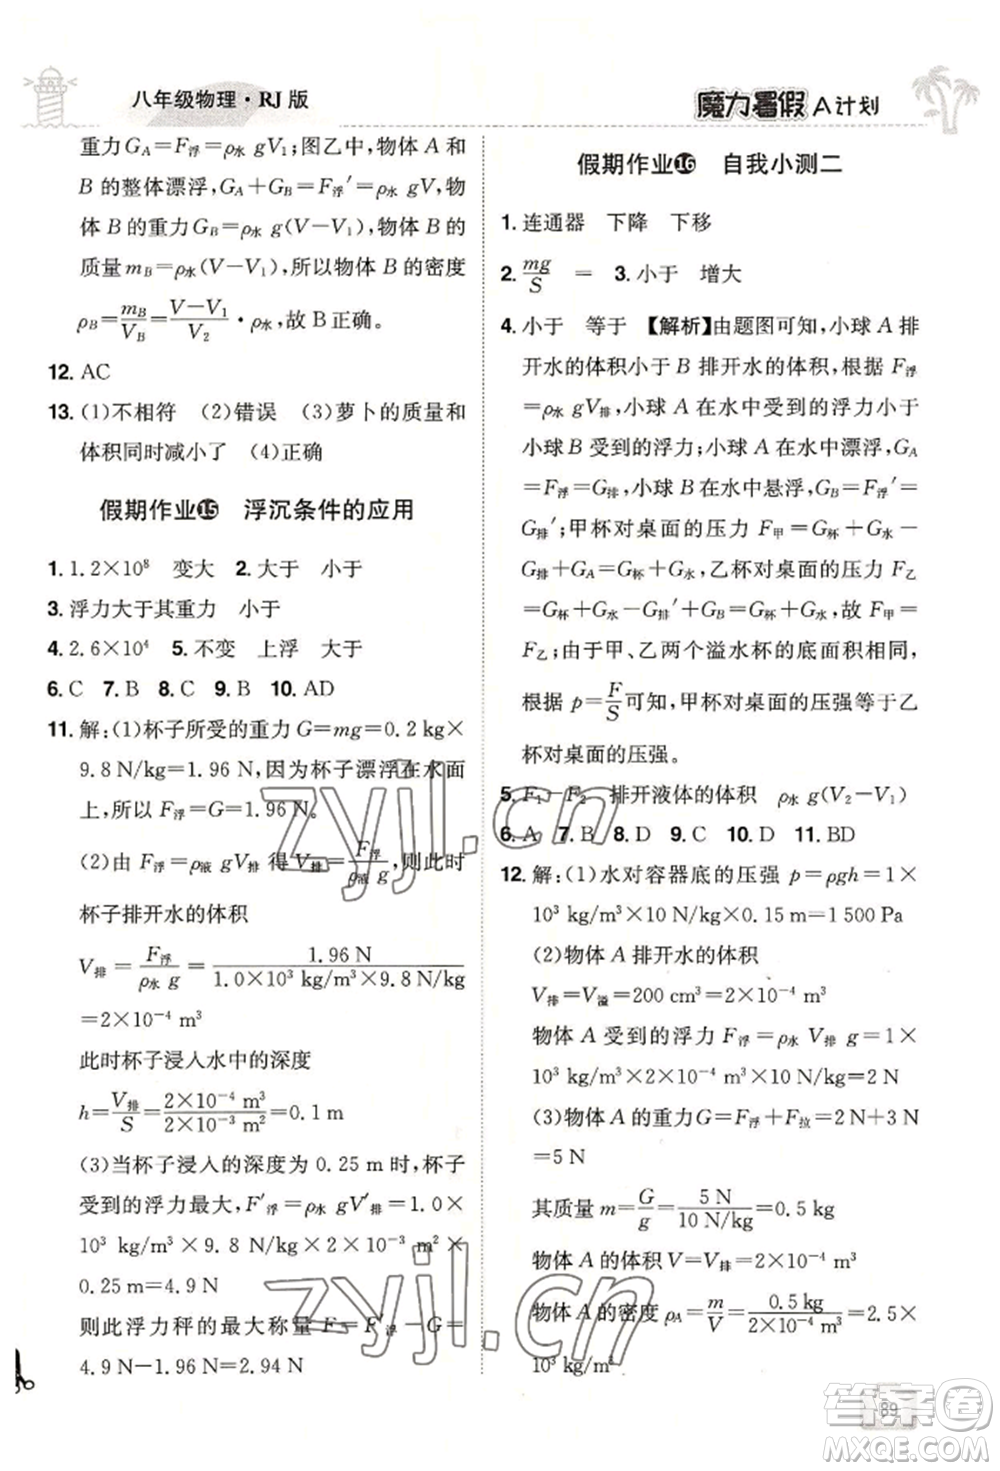 八年级物理·RJ版
魔力暑假 A计划
重力G_A=F_浮=ρ_水 gV₁;图乙中,物体 A 和
B 的整体漂浮,G_A+G_B=F′_浮=ρ_水 gV,物
体 B 的重力 G_B=ρ_水 g(V-V₁),物体 B 的
质量 m_B=ρ_水(V-V₁),所以物体 B 的密度
ρ_B=m_B/V_B=(V-V₁)/V₂·ρ_水,故 B 正确。
12. AC
13. (1)不相符 (2)错误 (3)萝卜的质量和
体积同时减小了 (4)正确
假期作业⑮ 浮沉条件的应用
1. 1.2×10⁸ 变大 2. 大于 小于
3. 浮力大于其重力 小于
4. 2.6×10⁴ 5. 不变 上浮 大于
6. C 7. B 8. C 9. B 10. AD
11. 解:(1)杯子所受的重力 G=mg=0.2 kg×
9.8 N/kg=1.96 N,因为杯子漂浮在水面
上,所以 F_浮=G=1.96 N。
(2)由 F_浮=ρ_液 gV_排 得 V_排=F_浮/(ρ_液 g),则此时
杯子排开水的体积
V_排=F_浮/(ρ_水 g)=1.96 N/(1.0×10³ kg/m³×9.8 N/kg)
=2×10⁻⁴ m³
此时杯子浸入水中的深度
h=V_排/S=(2×10⁻⁴ m³)/(2×10⁻³ m²)=0.1 m
(3)当杯子浸入的深度为 0.25 m 时,杯子
受到的浮力最大,F′_浮=ρ_水 gV′_排=1.0×
10³ kg/m³×9.8 N/kg×2×10⁻³ m²×
0.25 m=4.9 N
则此浮力秤的最大称量 F=F′_浮-G=
4.9 N-1.96 N=2.94 N
假期作业⑯ 自我小测二
1. 连通器 下降 下移
2. mg/S = 3. 小于 增大
4. 小于 等于 【解析】由题图可知,小球 A 排
开水的体积小于 B 排开水的体积,根据 F_浮
=ρ_水 gV_排,小球 A 在水中受到的浮力小于
小球 B 受到的浮力;小球 A 在水中漂浮,G_A
=F_浮=G_排,小球 B 在水中悬浮,G_B=F_浮′
=G_排′;甲杯对桌面的压力 F_甲=G_杯+G_水-
G_排+G_A=G_杯+G_水,乙杯对桌面的压力 F_乙
=G_杯+G_水-G_排′+G_B=G_杯+G_水,故 F_甲=
F_乙;由于甲、乙两个溢水杯的底面积相同,
根据 p=F/S可知,甲杯对桌面的压强等于乙
杯对桌面的压强。
5. F₁-F₂ 排开液体的体积 ρ_水 g(V₂-V₁)
6. A 7. B 8. D 9. C 10. D 11. BD
12. 解:(1)水对容器底的压强 p=ρgh=1×
10³ kg/m³×10 N/kg×0.15 m=1 500 Pa
(2)物体 A 排开水的体积
V_排=V_溢=200 cm³=2×10⁻⁴ m³
物体 A 受到的浮力 F_浮=ρ_水 V_排 g=1×
10³ kg/m³×2×10⁻⁴ m³×10 N/kg=2 N
(3)物体 A 的重力G=F_浮+F_拉=2 N+3 N
=5 N
其质量 m=G/g=5 N/(10 N/kg)=0.5 kg
物体 A 的体积 V=V_排=2×10⁻⁴ m³
物体 A 的密度 ρ_A=m/V=0.5 kg/(2×10⁻⁴ m³)=2.5×
10³ kg/m³
89
zyjl.cn
zyjl.cn
答案圈
MXQE.COM